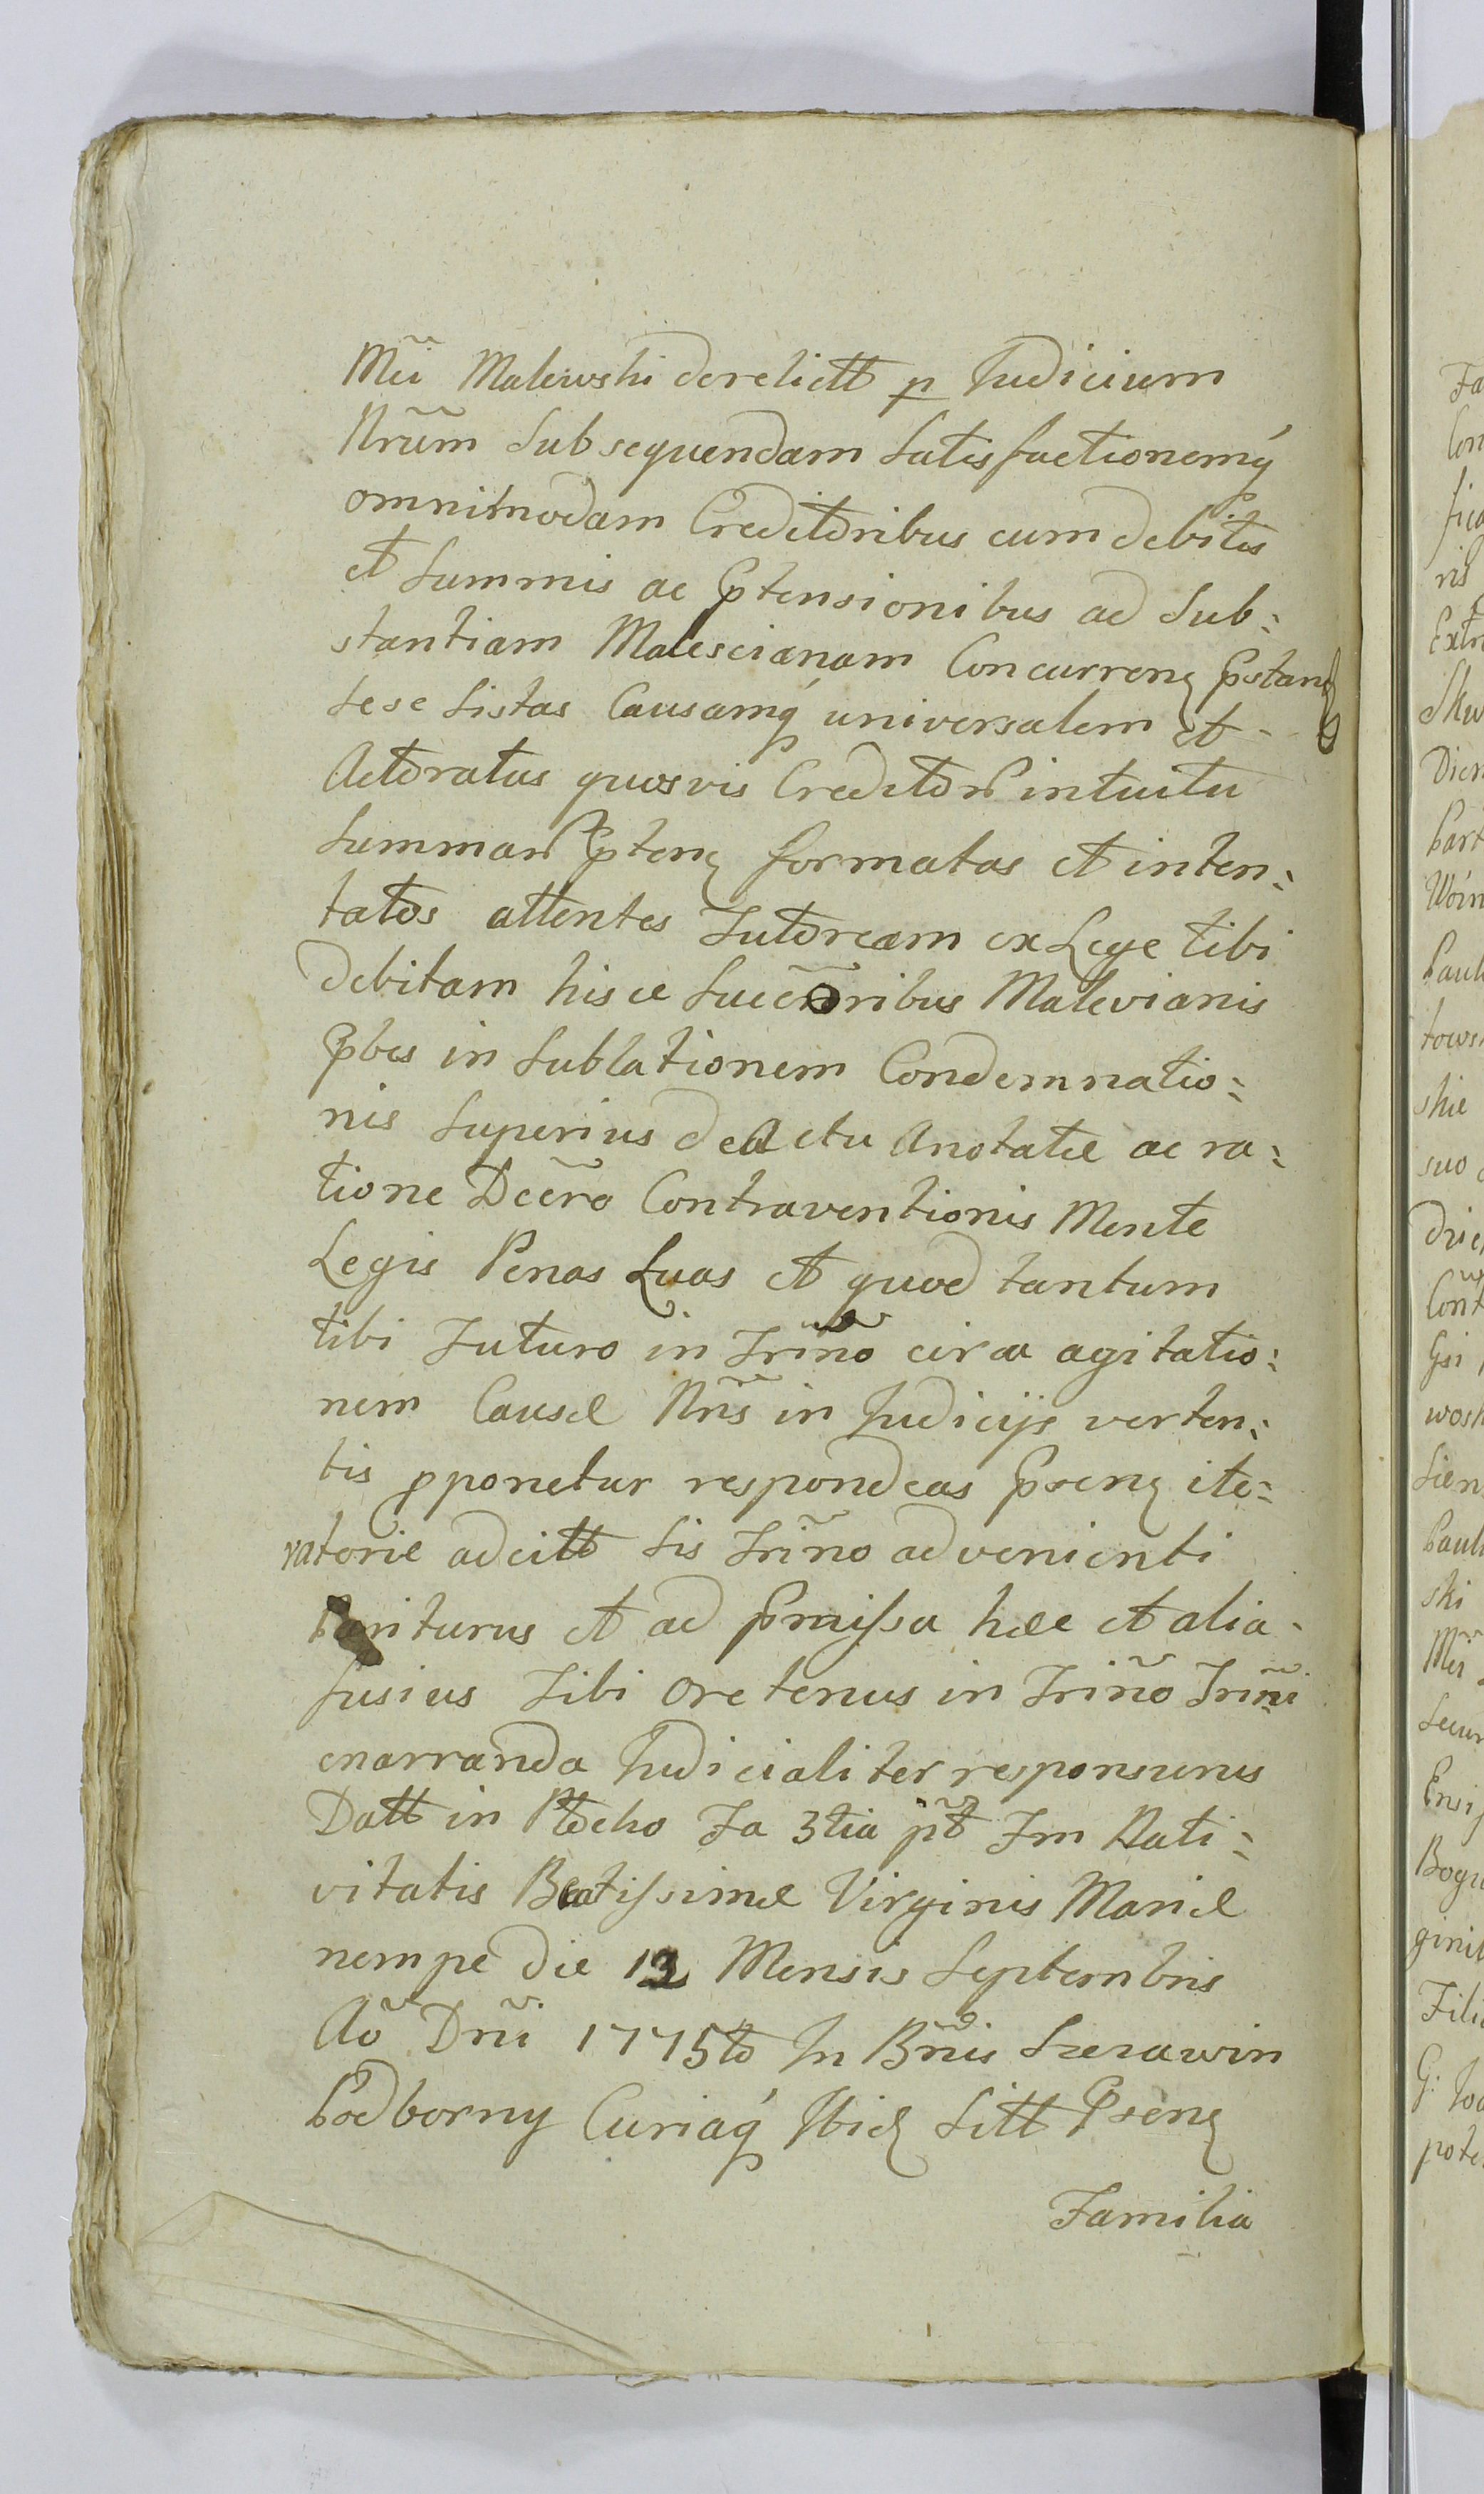 Mẽi Malewski derelictt p Judicium
Nrũm Subsequendam Satisfactionemq́
omnimodam Creditoribus cum debitis
et Summis ac Ptensionibus ad Sub:
stantiam Malescianam Concurren Pstan
sese Sistas Causamq́ universalem et
Actoratus quosvis Creditor intuitu
Summar Pten formatas et inten:
tatos attentes Tutoream ex Lege tibi
debitam hisce Succõribus Malevianis
Pbes in Sublationem Condemnatio:
nis Superius de Actu Anotatæ ac ra:
tione Dcẽro Contraventionis Mente
Legis Penas Luas et quod tantum
tibi Futuro in Trĩno circa agitatio:
nem Causæ Nrĩs in Judicijs verten:
tis pponetur respondeas Psen ite:
ratorie adcitt Sis Trĩno advenienti
Pariturus et ad Pmissa hæc et alia
fusius Tibi oretenus in Trĩno Trĩni
enarranda Judicialiter responsurus
Datt in Płocko Fa 3tia põt Fm Nati:
vitatis Beatissimæ Virginis Mariæ
nempe die 12 Mensis Septembris
Aõ Dnĩ 1775to In Bñis
Podborny Curiaq́ Ibid Sitt Psen
Familia
Fa
Con
fica
ris
Extr
Skw
Dien
Part
Woin
Paul
tows
skie
suo
Drie
Cont
Gsi
wosk
Sien
Paul
ski
Mẽi
Secun
Ensi
Bogu
ginit
Filia
G: Joa
pote